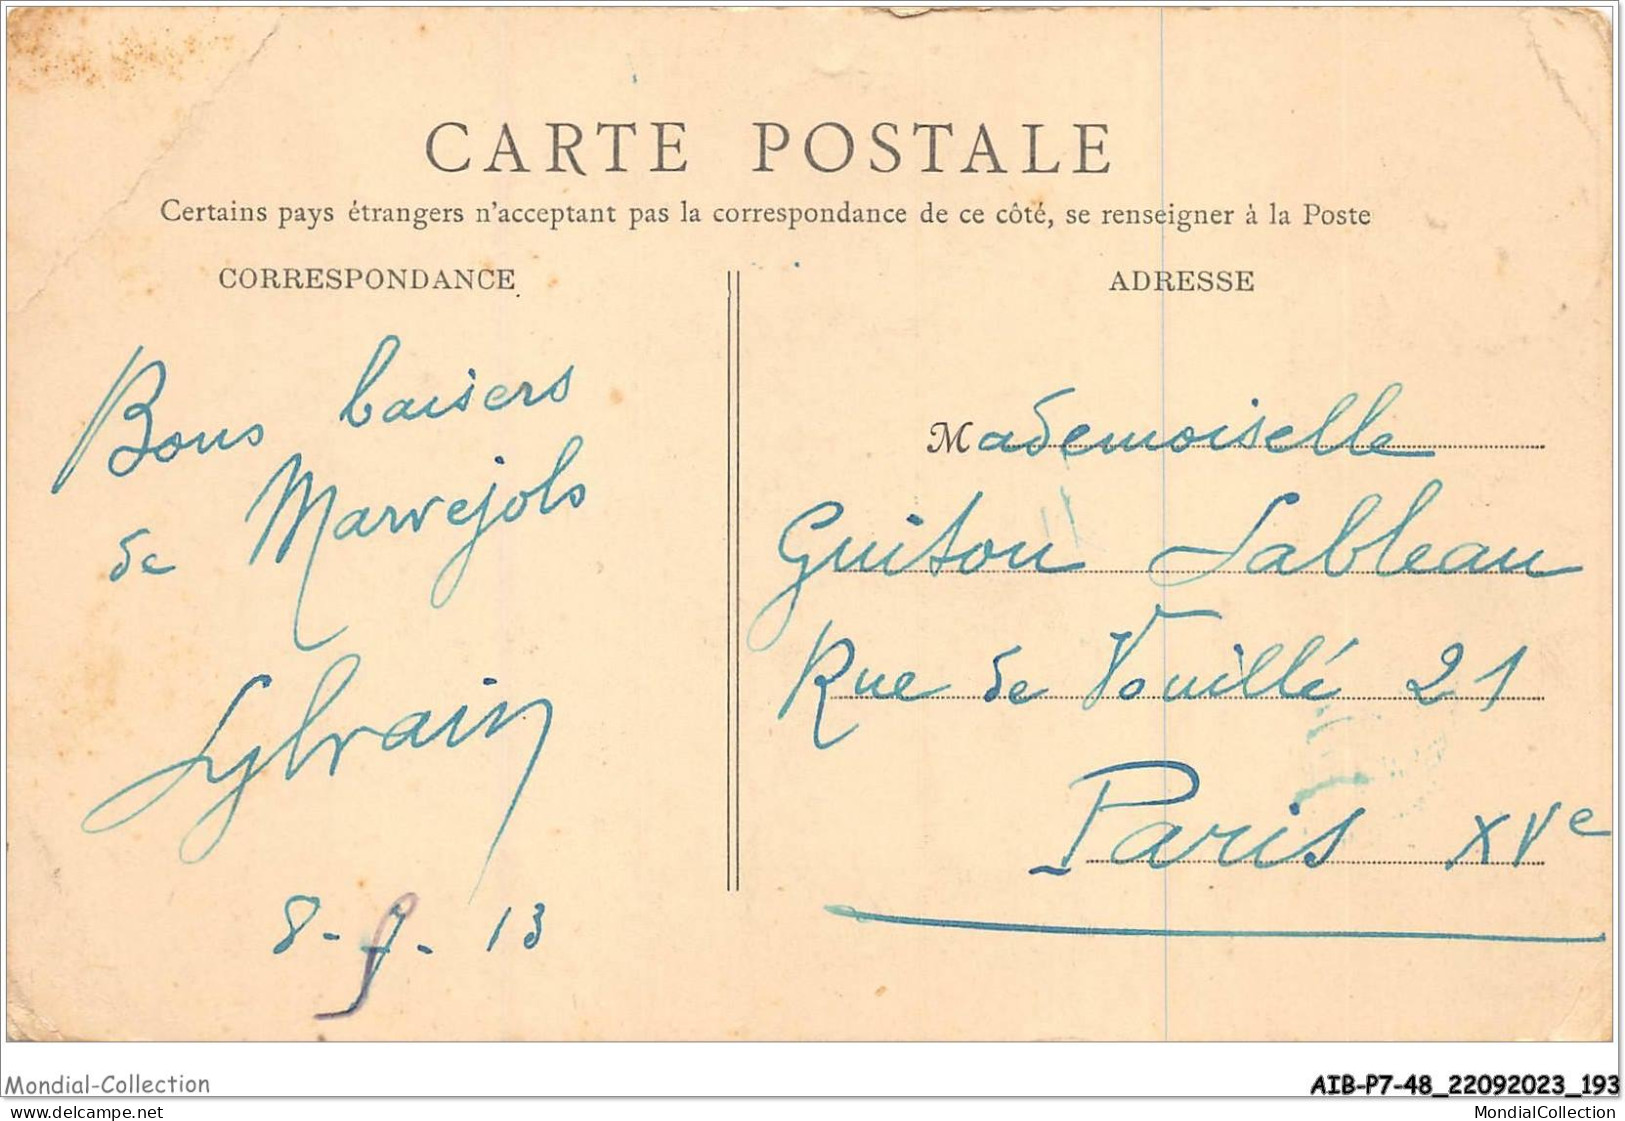 CARTE POSTALE
Certains pays étrangers n'acceptant pas la correspondance de ce côté, se renseigner à la Poste
CORRESPONDANCE
Bons baisers
de Marvejols
Sylvain
8-7-13
ADRESSE
Mademoiselle
Guiton Sableau
Rue de Vouillé 21
Paris XVe
Mondial-Collection
AIB-P7-48_22092023_193
www.delcampe.net
MondialCollection